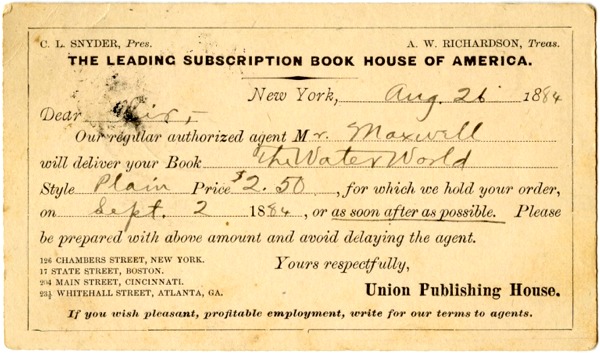 C. L. SNYDER, Pres. A. W. RICHARDSON, Treas.
THE LEADING SUBSCRIPTION BOOK HOUSE OF AMERICA.
New York, Aug. 26 1884
Dear Sir,
Our regular authorized agent Mr. Maxwell
will deliver your Book The Water World
Style Plain Price $2.50, for which we hold your order,
on Sept. 2 1884, or as soon after as possible. Please
be prepared with above amount and avoid delaying the agent.
126 CHAMBERS STREET, NEW YORK.
17 STATE STREET, BOSTON.
204 MAIN STREET, CINCINNATI.
23½ WHITEHALL STREET, ATLANTA, GA.
Yours respectfully,
Union Publishing House.
If you wish pleasant, profitable employment, write for our terms to agents.